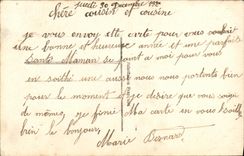 Jeudi 30 Decembre
Chère cousin et cousine
je vous envoy ette carte pour vous souhait
une bonne et heureuse année et une parfaite
Santé Maman se joint a moi pour vous
en souhté une aussi nous nous portents bien
pour le moment et je désire que vous soigi
de mômes je finie Ma carte en vous souite
bien le bonjour
Marie Bernard